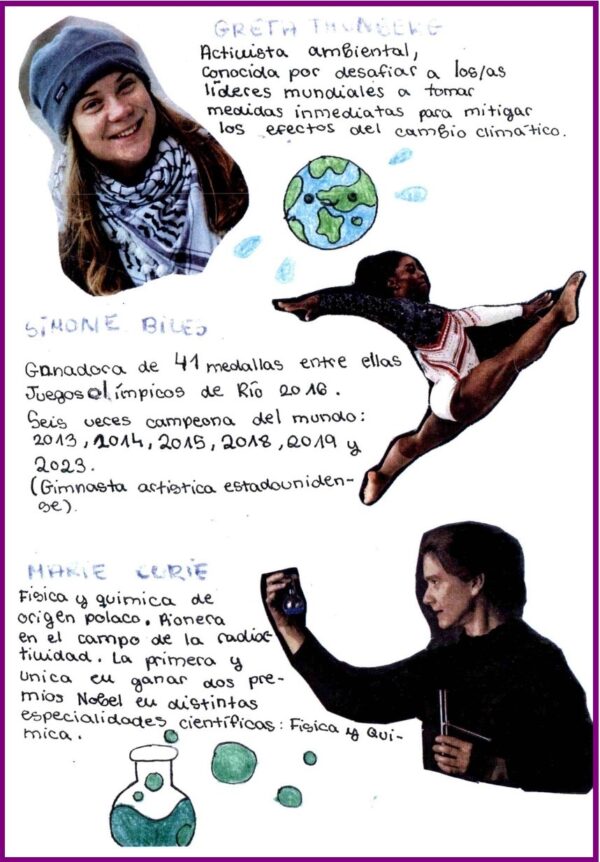 GRETA THUNBERG
Activista ambiental,
conocida por desafiar a los/as
líderes mundiales a tomar
medidas inmediatas para mitigar
los efectos del cambio climático.
SIMONE BILES
Ganadora de 41 medallas entre ellas
Juegos olímpicos de Río 2016.
Seis veces campeona del mundo:
2013, 2014, 2015, 2018, 2019 y
2023.
(Gimnasta artística estadouniden-
se).
MARIE CURIE
Física y química de
origen polaco. Pionera
en el campo de la radiac-
tividad. La primera y
unica en ganar dos pre-
mios Nobel en distintas
especialidades científicas: Física y Quí-
mica.